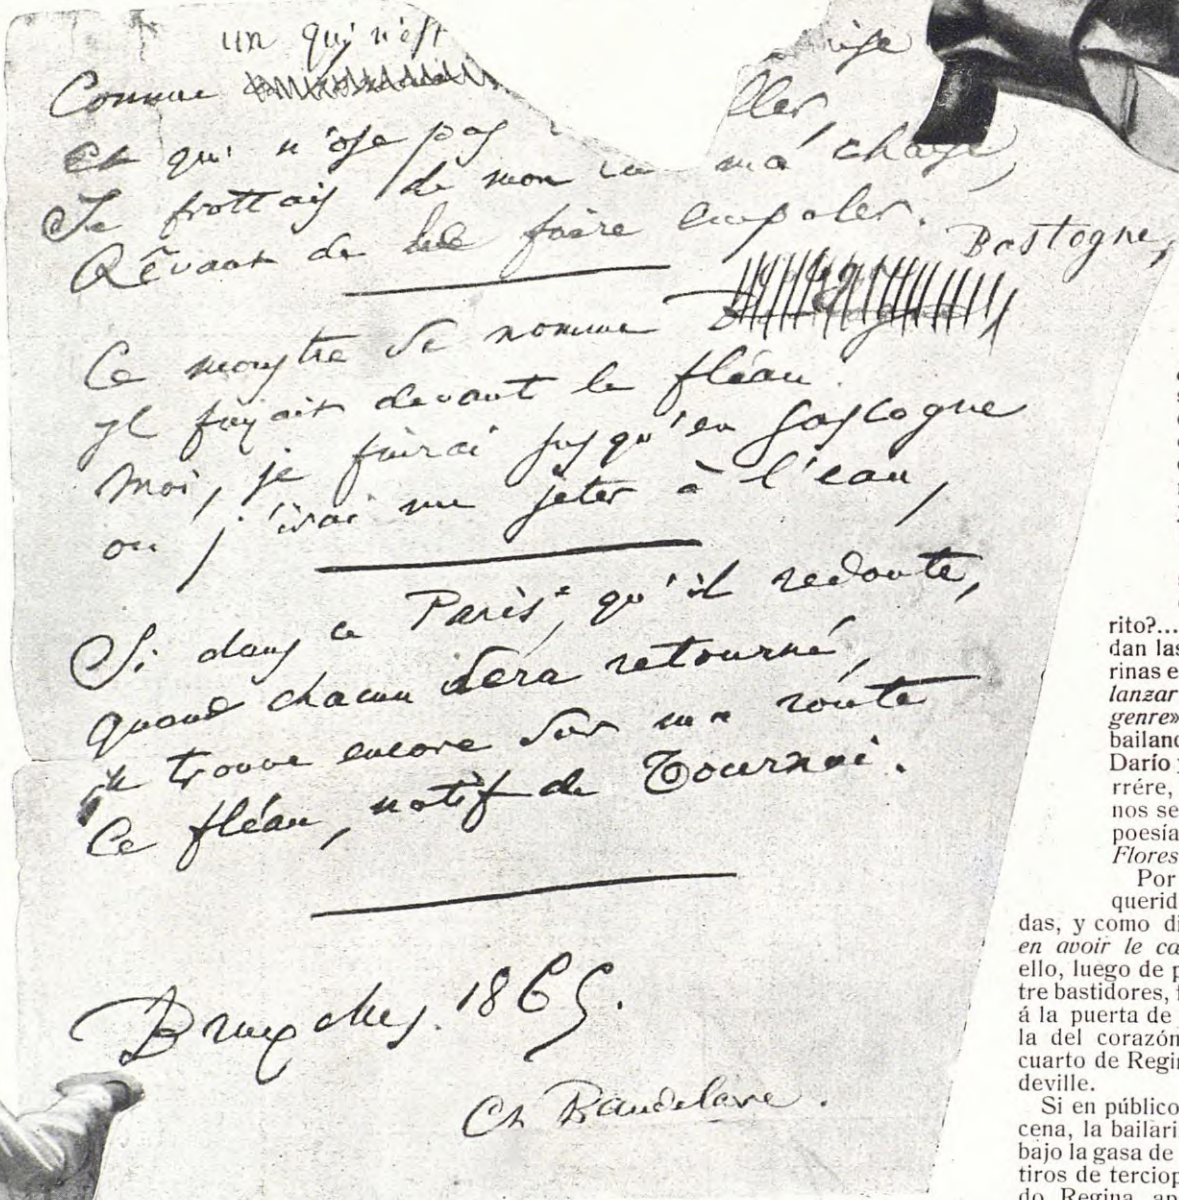 un qui n'est
Comme
et qui n'ose pas ller,
Je frottais de mon ma chaise,
Rêvant de le faire empaler.
Bastogne,
Ce monstre se nomme
Il fuyait devant le fléau.
Moi, je fuirai jusqu'en Gascogne
ou j'irai me jeter à l'eau,
Si dans ce Paris, qu'il redoute,
quand chacun sera retourné,
Je trouve encore sur ma route
Ce fléau, natif de Tournai.
Bruxelles. 1865.
Ch Baudelaire.
rito?...
dan las
rinas e
lanzar
genre»
bailand
Darío y
rrére,
nos se
poesía
Flores
Por
querid
das, y como di
en avoir le cœ
ello, luego de p
tre bastidores, f
á la puerta de
la del corazón
cuarto de Regin
deville.
Si en público
cena, la bailari
bajo la gasa de
tiros de terciop
do Regina, ap